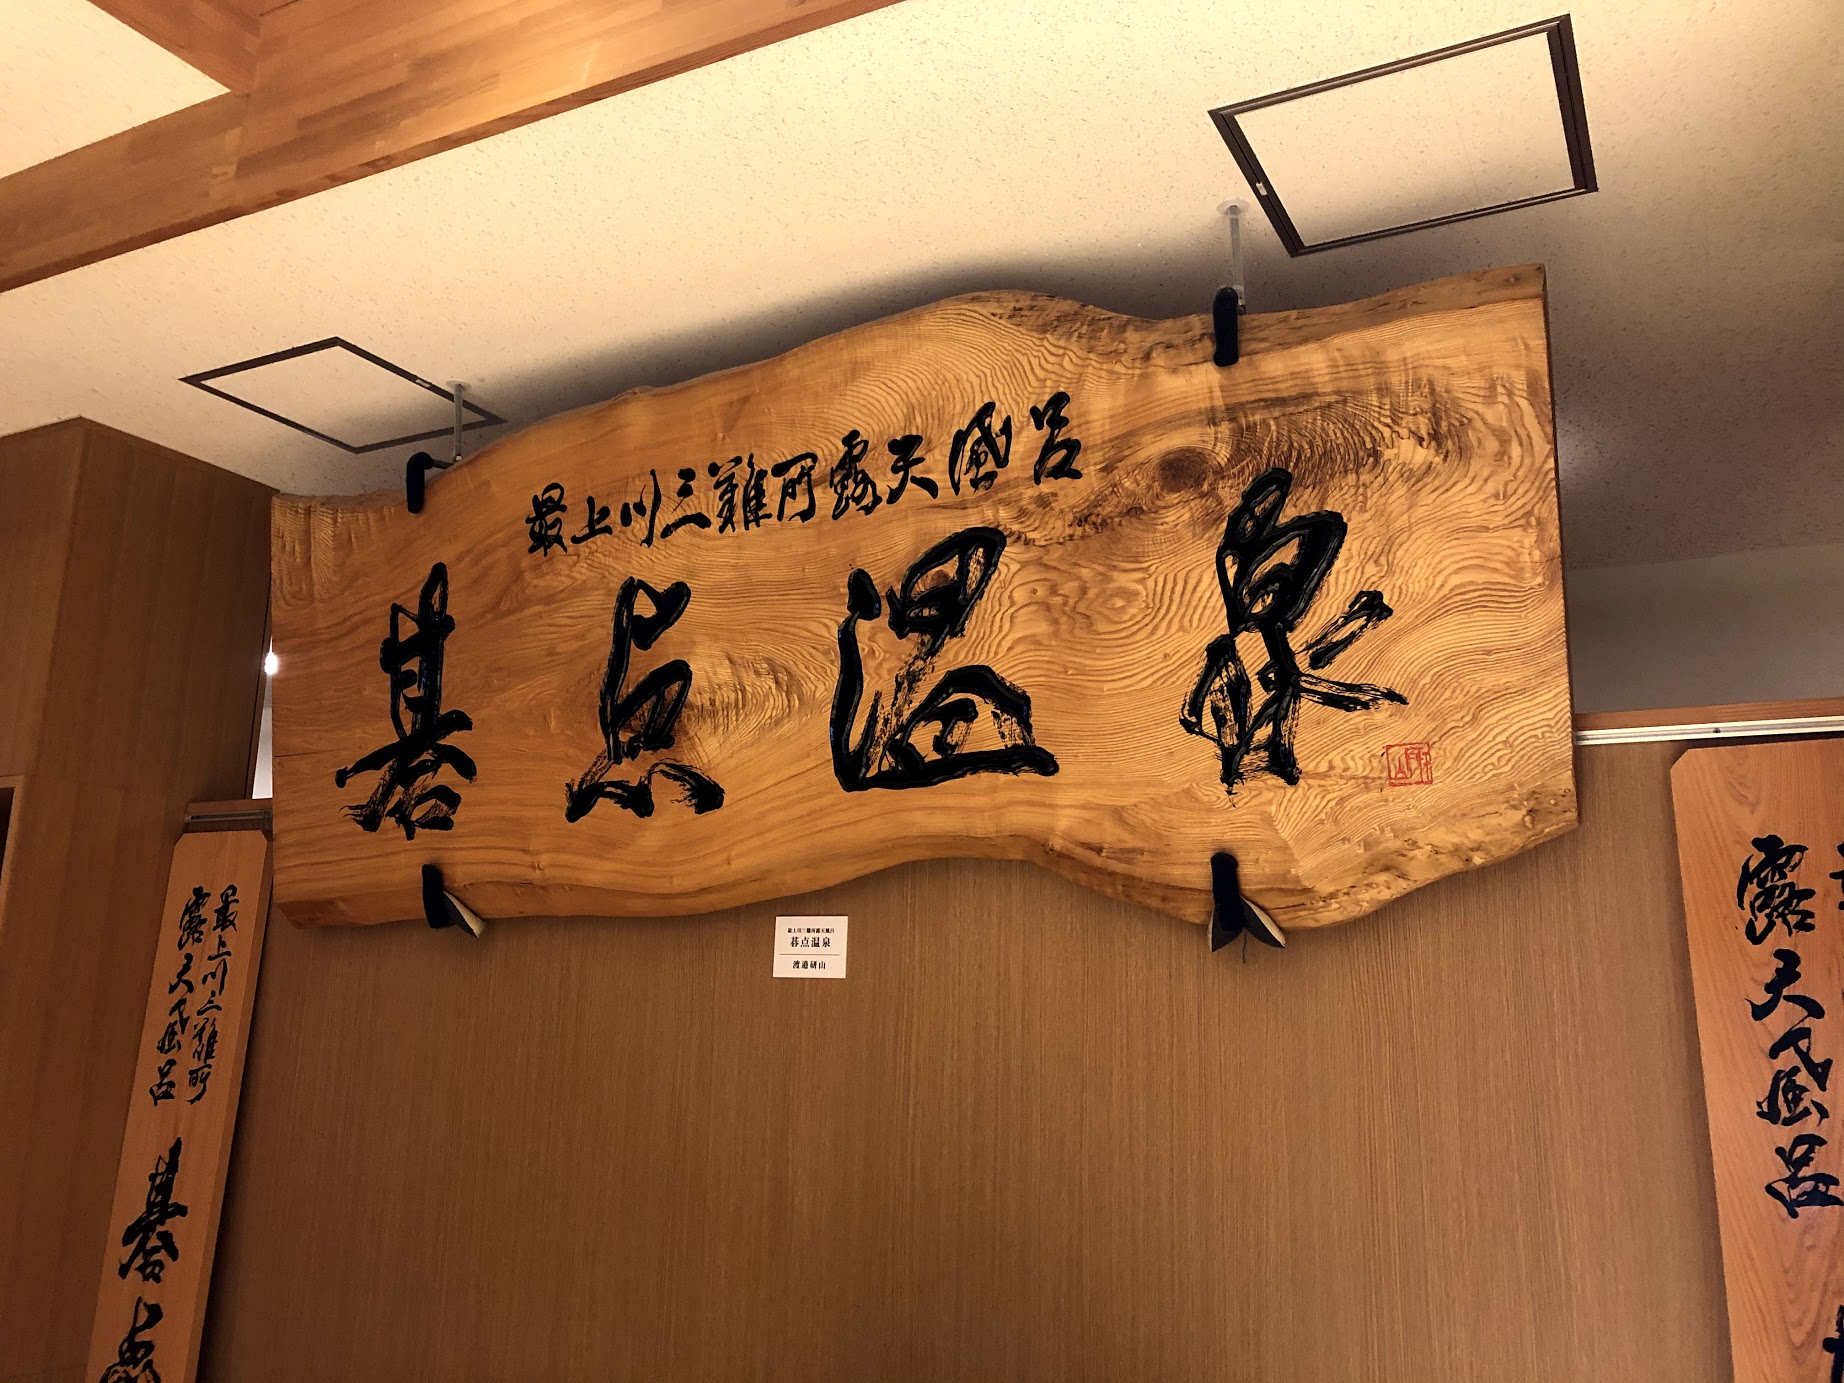 最上川三難所露天風呂
碁点温泉
最上川三難所露天風呂
碁点温泉
渡邉研山
最上川三難所
露天風呂
碁点
露天風呂